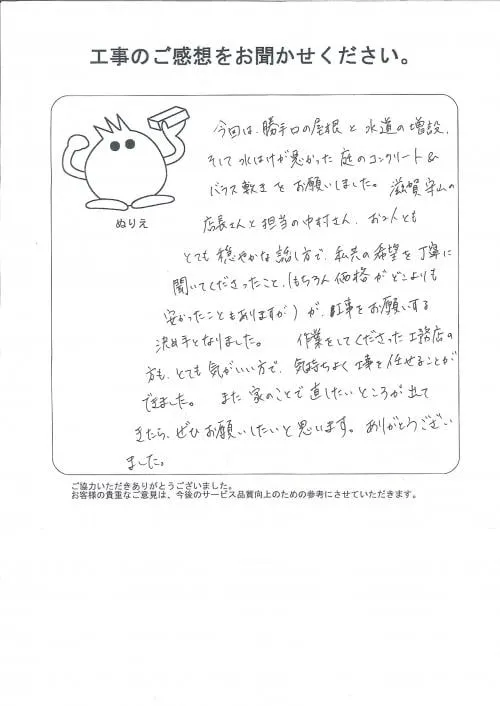 工事のご感想をお聞かせください。
今回は、勝手口の屋根と水道の増設、
そして水はけが悪かった庭のコンクリート&
バラス敷きをお願いしました。滋賀守山の
店長さんと担当の中村さん、お2人とも
とても穏やかな話し方で、私共の希望を丁寧に
聞いてくださったこと、(もちろん価格がどこよりも
安かったこともありますが)が、工事をお願いする
決め手となりました。 作業をしてくださった工務店の
方も、とても気がいい方で、気持ちよく工事を任せることが
できました。 また家のことで直したいところが出て
きたら、ぜひお願いしたいと思います。ありがとうござい
ました。
ぬりえ
ご協力いただきありがとうございました。
お客様の貴重なご意見は、今後のサービス品質向上のための参考にさせていただきます。